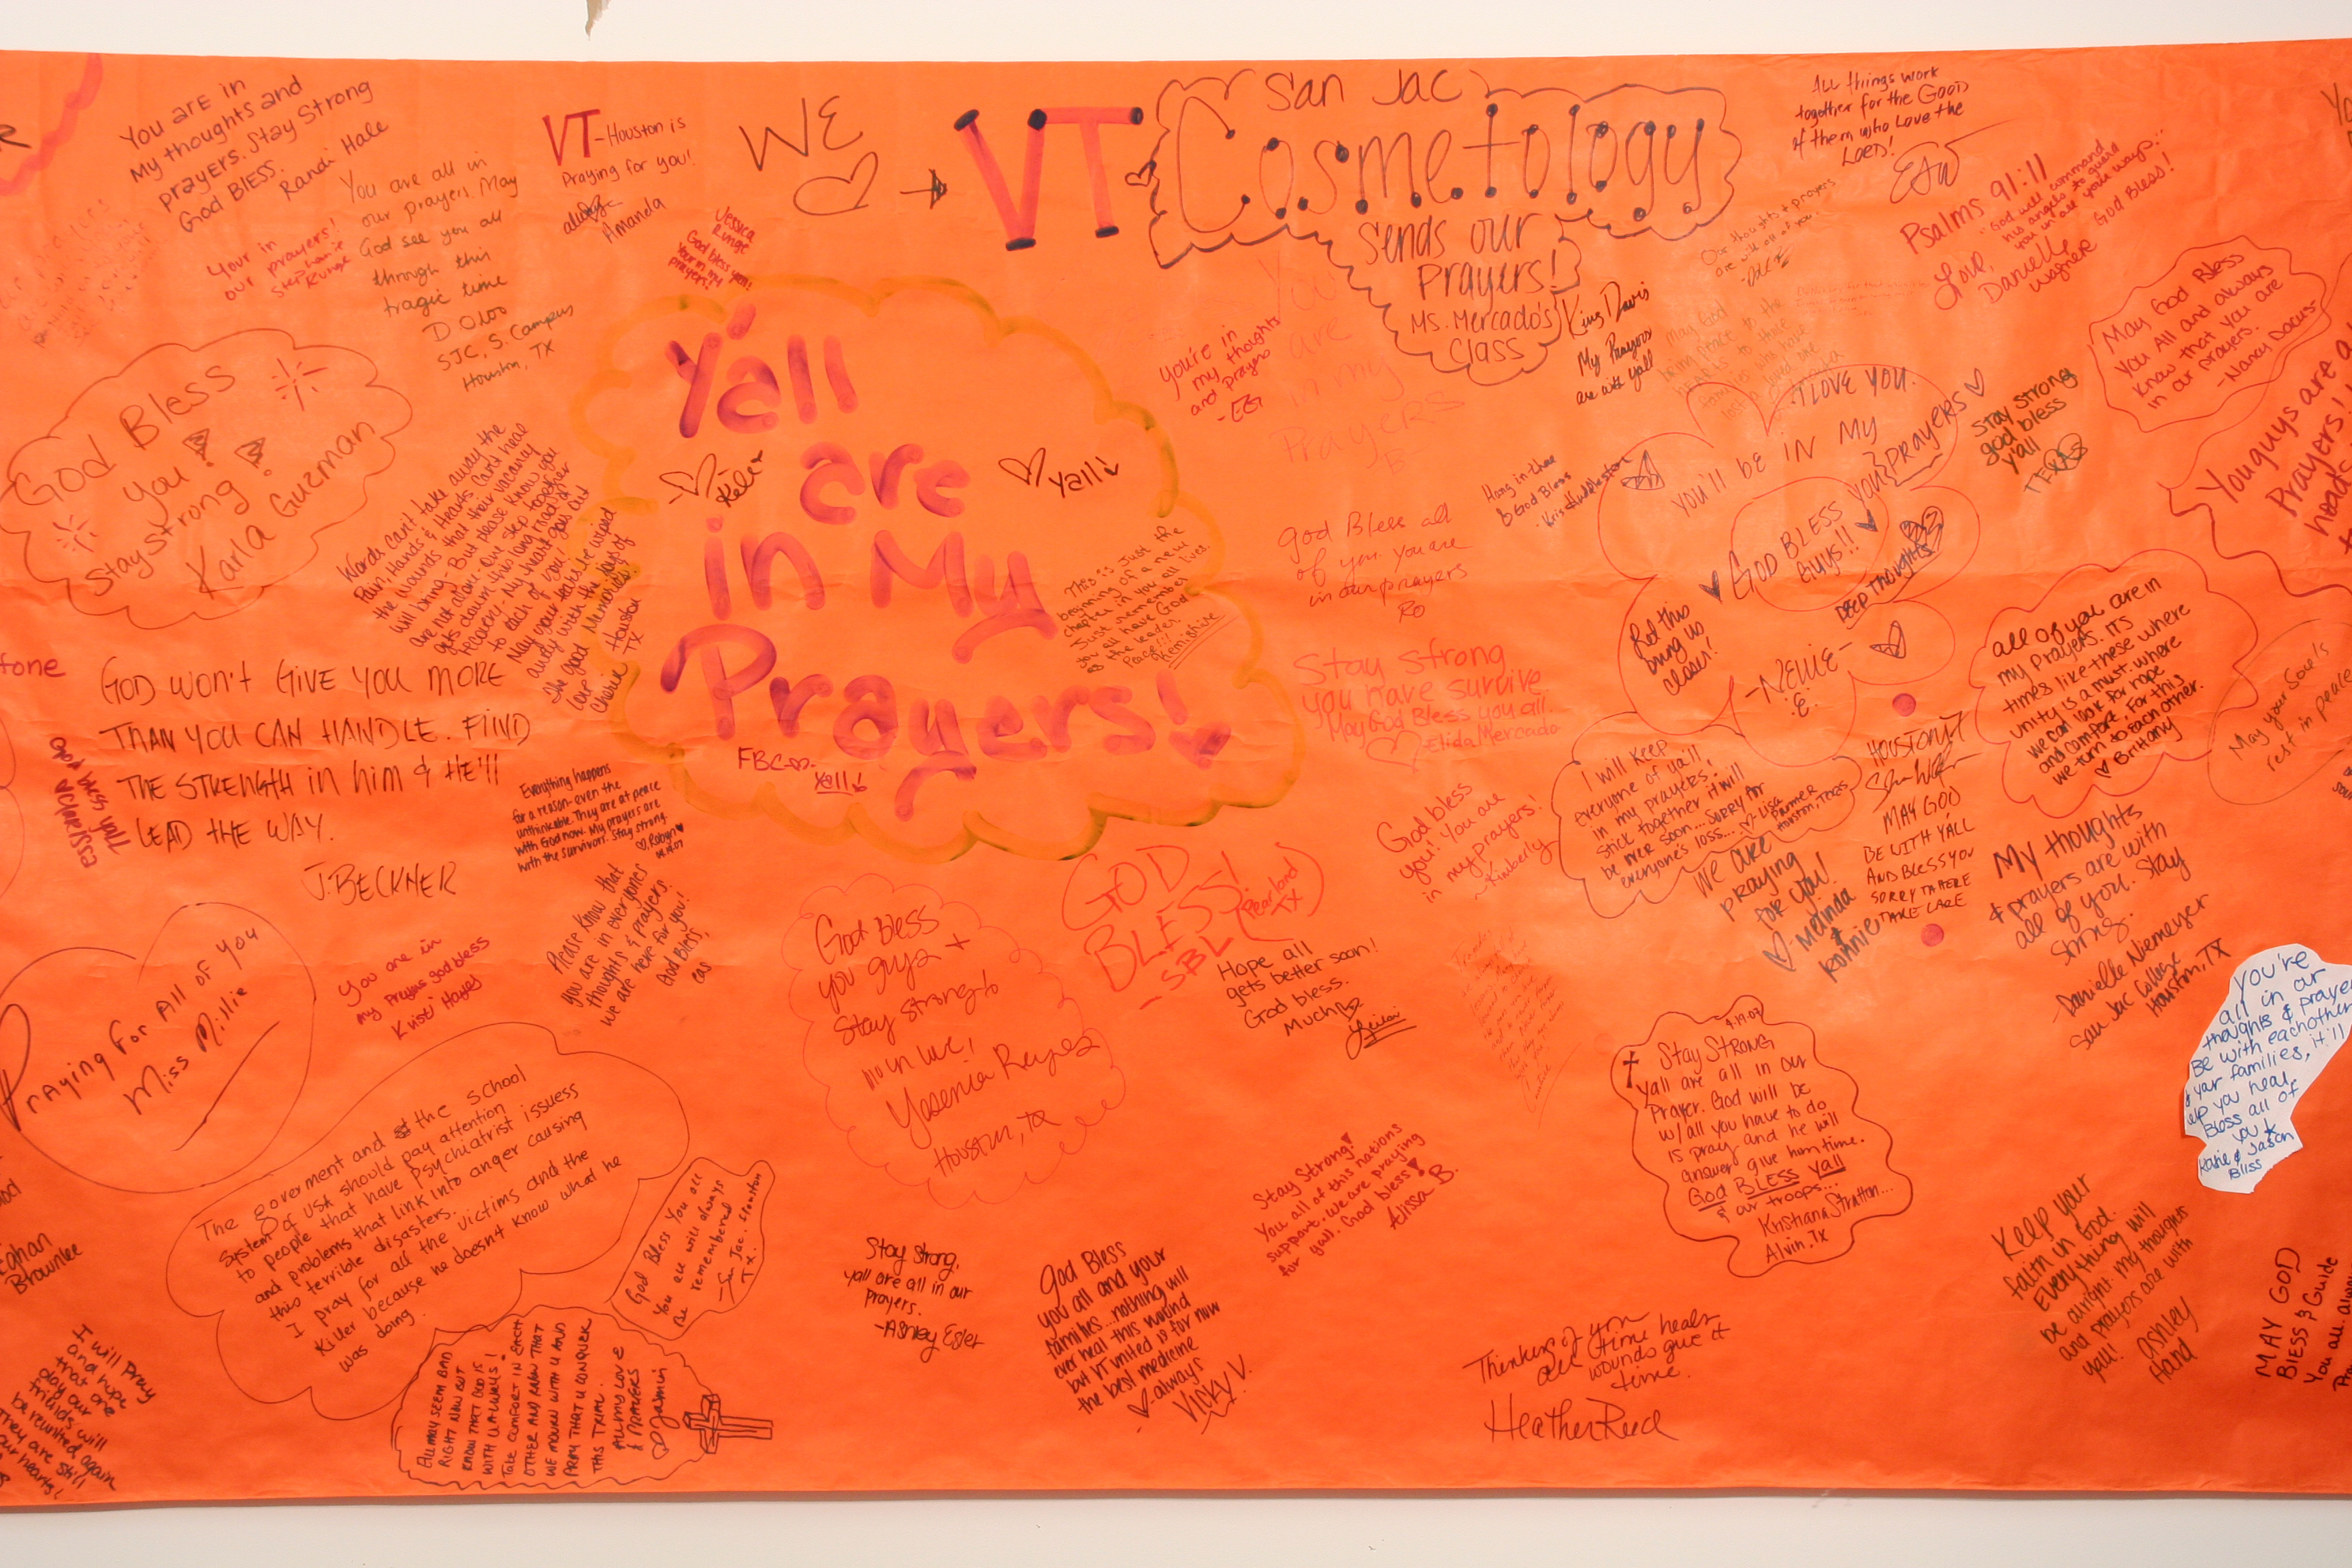 You are in
My thoughts and
prayers. Stay Strong
God BLESS.
Randi Hale
Your in
our prayers!!
Stephanie
Runge
You are all in
our prayers. May
God see you all
through this
tragic time
SJC, S. Campus
Houston, TX
VT-Houston is
Praying for you!
always
Amanda
Jessica
Runge
God bless you!
Your in my
prayers!
WE
VT
San Jac
Cosmetology
Sends our
Prayers!
Ms. Mercado's
Class
All things work
together for the GOOD
of them who Love the
LORD!
Psalms 91:11
"God will command
his angels to guard
you in all your ways."
God Bless!
Love,
Danielle
Wagner
Our thoughts & prayers
are with all of you.
King Davis
My Prayers
are with yall
May God
bring peace to the
hearts to those
families who have
lost a loved one
May God Bless
You All and always
Know that you are
in our prayers.
-Nancy Dacus-
You guys are a
Prayers!
God Bless
you!
Stay strong!
Karla Guzman
Words can't take away the
Pain, Hands & Hearts Can't heal
the wounds that their vacancy
will bring. But please know you
are not alone. One step together
gets down this long road of
recovery. My heart goes out
to each of you!
May your tears be wiped
away with the joys of
the good Memories.
Love Cherie Houston
TX
Y'all
are
in My
Prayers!
Kelli
yall!
FBC
Yall!
This is just the
beginning of a new
chapter in you all lives.
Just remember
you all have God
as the leader.
Peace!!
You're in
my thoughts
and prayers
-EG
You
are
in my
Prayers
B-
Hang in there
& God Bless
- Kris Huddleston
I LOVE YOU.
YOU'll BE IN MY
PRAYERS
GOD BLESS YOU
GUYS!!
DEEP THOUGHTS
Let this
bring us
closer!
-NELLIE-
Stay strong
god bless
y'all
TEXAS
god Bless all
of you. you are
in our prayers
Ro
Stay strong
you have survive
May God Bless you all.
Elida Mercado
all of you are in
my prayers. It's
times like these where
unity is a must. where
we can look for hope
and comfort. For this
we turn to each other.
Brittany
May your Soul's
rest in peace
GOD WON'T GIVE YOU MORE
THAN YOU CAN HANDLE. FIND
THE STRENGTH in him & HE'll
LEAD THE WAY.
J. BECKNER
God bless yall
Clarissa
Everything happens
for a reason-even the
unthinkable. They are at peace
with God now. My prayers are
with the survivors. Stay strong.
Robyn
Please know that
you are in everyones
thoughts & prayers.
we are here for you!
God Bless,
cas
I will keep
everyone of ya'll
in my prayers,
stick together it will
be over soon... SORRY for
everyone's loss...
Lisa
Parmer
Houston, Texas
HOUSTON TX
MAY GOD
BE WITH Y'ALL
AND BLESS YOU
SORRY TA HERE
TAKE CARE
We are
praying
for you!
Melinda
&
Ronnie
My thoughts
& prayers are with
all of you. Stay
Strong.
Danielle Niemeyer
San Jac College
Houston, TX
God bless
you! You are
in my prayers!
~Kimberly
GOD
BLESS!
-SBL
(Pearland
TX)
Hope all
gets better soon!
God bless.
Much
Praying For All of You
Miss Millie
You are in
my prayers god bless
Kristi Hayes
God Bless
you guys +
Stay strong
Yesenia Reyes
Houston, TX
The goverment and the school
System of USA should pay attention
to people that have Psychiatrist issuess
and problems that link into anger causing
this terrible disasters.
I pray for all the victims and the
Killer because he doesnt know what he
was doing.
God Bless You all
You all will always
Be remembered
-San Jac. Houston
TX.
All MAY SEEM BAD
RIGHT NOW BUT
KNOW THAT GOD IS
WITH U ALWAYS!
Take COMFORT IN EACH
OTHER AND KNOW THAT
WE MOURN WITH U AND
PRAY THAT U CONQUER
THIS TRIAL.
All my LOVE
& PRAYERS
Jasmin
Stay Strong,
yall are all in our
prayers.
-Ashley Esler
God Bless
you all and your
families...nothing will
ever heal this wound
but VT united is for now
the best medicine
always
VICKY V.
Stay Strong!
You all of this nations
support. We are praying
for yall. God bless!
Alissa B.
4-19-07
Stay STRONG
Yall are all in our
Prayer. God will be
w/ all you have to do
is pray and he will
answer give him time.
God BLESS Yall
& our troops...
Kristiana Stratton...
Alvin, TX
Thinking of you
all time heals
wounds give it
time.
Heather Reed
You're
all in our
thoughts & prayers
Be with eachother
& your families, it'll
help you heal.
Bless all of
you
Katie & Jason
Bliss
Keep your
faith in God.
Everything will
be alright. My thoughts
and prayers are with
yall!
Ashley
Hand
MAY GOD
Bless & Guide
You all
Brownlee
I will pray
and hope
that one
day our
friends will
be reunited again
They are still
our hearts!